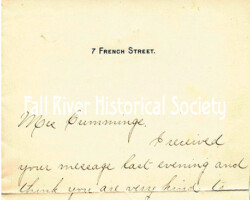 7 French Street.
Fall River Historical Society
Mrs Cummings,
I received
your message last evening and
think you are very kind to